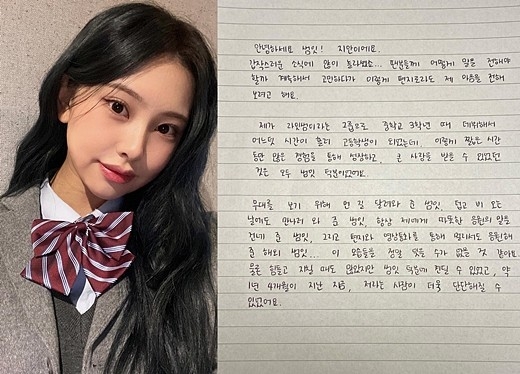 안녕하세요 범잇! 지안이에요.
갑작스러운 소식에 많이 놀라셨죠... 팬분들께 어떻게 말을 전해야
할까 계속해서 고민하다가 이렇게 편지로라도 제 마음을 전해
보려고 해요.
제가 라임밤이라는 그룹으로 중학교 3학년 때 데뷔해서
어느덧 시간이 흘러 고등학생이 되었는데, 이렇게 짧은 시간
동안 많은 경험을 통해 성장하고, 큰 사랑을 받을 수 있었던
것은 모두 범잇 덕분이었어요.
무대를 보기 위해 먼 길 달려와 준 범잇, 덥고 비 오는
날에도 만나러 와 준 범잇, 항상 저에게 따뜻한 응원의 말을
건네 준 범잇, 그리고 편지와 영상통화를 통해 멀리서도 응원해
준 해외 범잇... 이 모습들을 정말 잊을 수가 없을 것 같아요
물론 힘들고 지칠 때도 많았지만 범잇 덕분에 견딜 수 있었고, 약
1년 4개월이 지난 지금, 저라는 사람이 더욱 단단해질 수
있었어요.